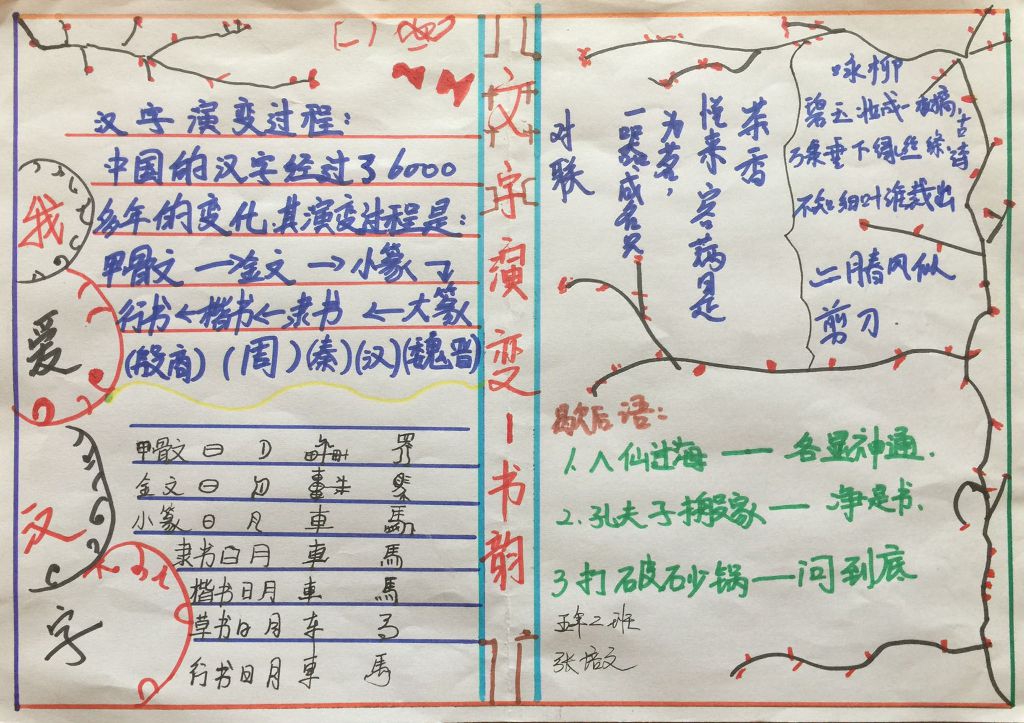 我
爱
汉
字
汉字演变过程：
中国的汉字经过了6000
多年的变化，其演变过程是：
甲骨文→金文→小篆
行书←楷书←隶书←大篆
(殷商)(周)(秦)(汉)(魏晋)
甲骨文
金文
小篆 日 月 車 馬
隶书 日 月 車 馬
楷书 日 月 車 馬
草书 日 月 车 马
行书 日 月 車 馬
文字演变一书韵
对联
茶香
惟来客病是
为茗，
古诗
咏柳
碧玉妆成一树高，
万条垂下绿丝绦，
不知细叶谁裁出
二月春风似
剪刀.
歇后语：
1.八仙过海——各显神通.
2.孔夫子搬家——净是书.
3打破砂锅——问到底
五年二班
张培文